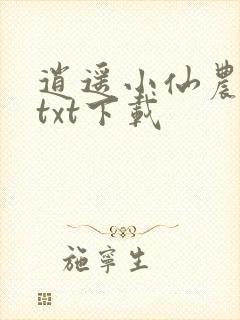 逍遥小仙農
txt下載
施寧生